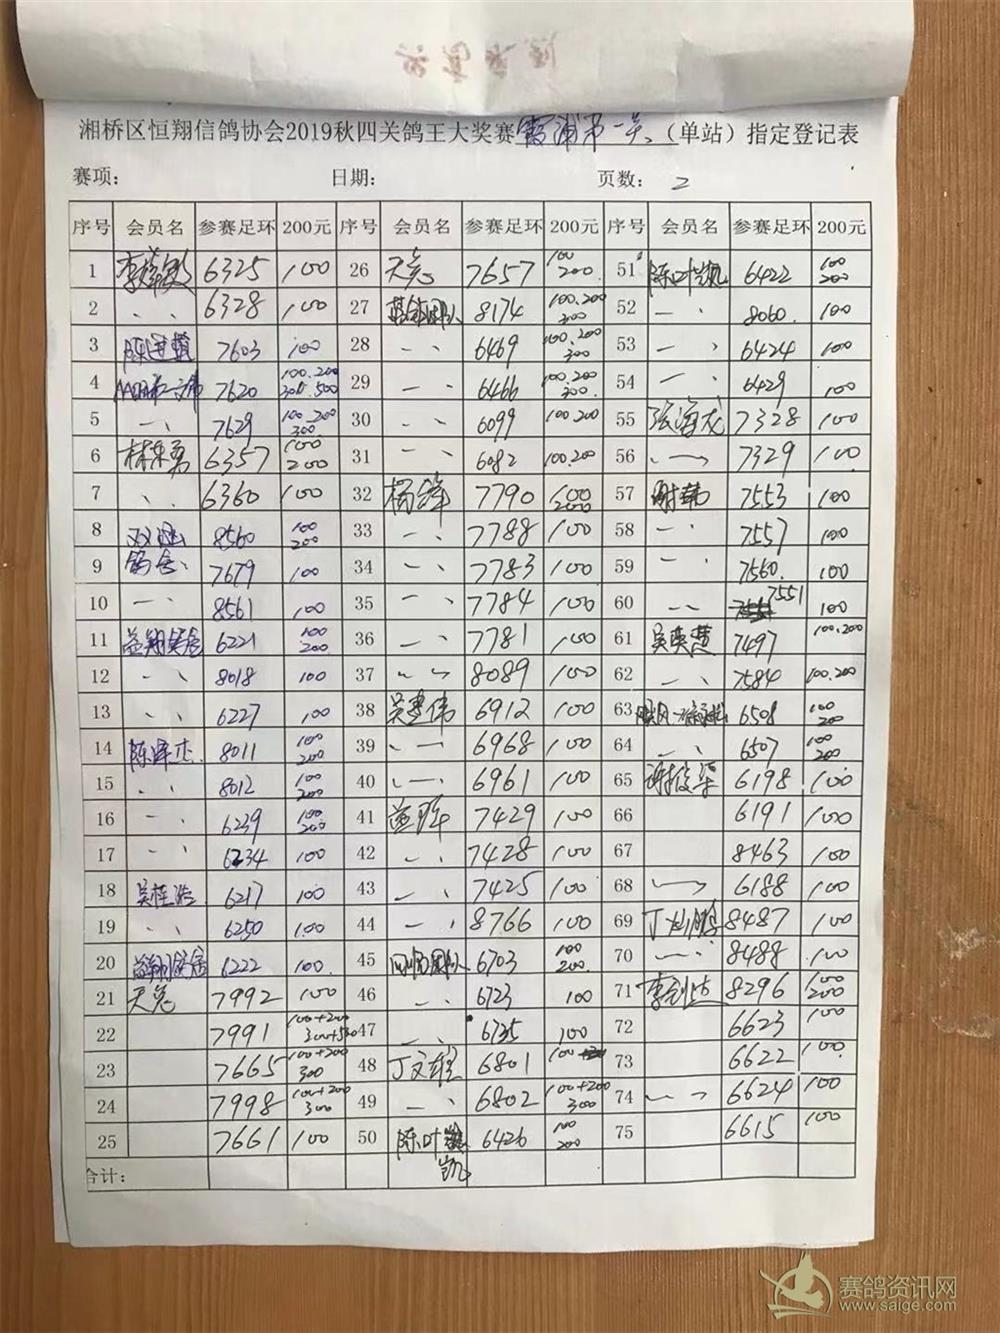 湘桥区恒翔信鸽协会2019秋四关鸽王大奖赛霞浦第一关(单站)指定登记表
赛项: 日期: 页数: 2
序号 会员名 参赛足环 200元 序号 会员名 参赛足环 200元 序号 会员名 参赛足环 200元
1 6325 100 26 7657 100 200 51 陈叶凯 6422 100 200
2 〃 6328 100 27 8174 100.200 300 52 〃 8060 100
3 7603 100 28 6469 100.200 300 53 〃 6424 100
4 7620 100.200 300.500 29 〃 6466 100.200 300 54 〃 6429 100
5 〃 7629 100.200 300 30 〃 6099 100.200 55 张海龙 7328 100
6 林东勇 6357 100 200 31 〃 6082 100.200 56 〃 7329 100
7 〃 6360 100 32 杨锋 7790 100 200 57 谢韩 7553 100
8 8560 100 200 33 〃 7788 100 58 〃 7557 100
9 鸽舍 7679 100 34 〃 7783 100 59 〃 7560 100
10 〃 8561 100 35 〃 7784 100 60 〃 7551 100
11 益翔鸽舍 6221 100 200 36 〃 7781 100 61 吴奕慧 7497 100.200
12 〃 8018 100 37 〃 8089 100 62 〃 7584 100.200
13 〃 6227 100 38 吴建伟 6912 100 63 6508 100 200
14 陈泽杰 8011 100 200 39 〃 6968 100 64 〃 6507 100 200
15 〃 8012 100 200 40 〃 6961 100 65 6198 100
16 〃 6239 100 200 41 7429 100 66 6191 100
17 〃 6234 100 42 〃 7428 100 67 8463 100
18 吴桂浩 6217 100 43 〃 7425 100 68 〃 6188 100
19 〃 6250 100 44 〃 8766 100 69 丁灿鹏 8487 100
20 益翔鸽舍 6222 100 45 6703 100 200 70 〃 8488 100
21 7992 100 46 〃 6723 100 71 李剑达 8296 100 200
22 7991 100+200 300+500 47 〃 6735 100 72 6623 100
23 7665 100+200 300 48 丁文雄 6801 100 73 6622 100
24 7998 100+200 300 49 〃 6802 100+200 300 74 〃 6624 100
25 7661 100 50 陈叶凯 6426 100 200 75 6615 100
合计:
赛鸽资讯网
www.saige.com